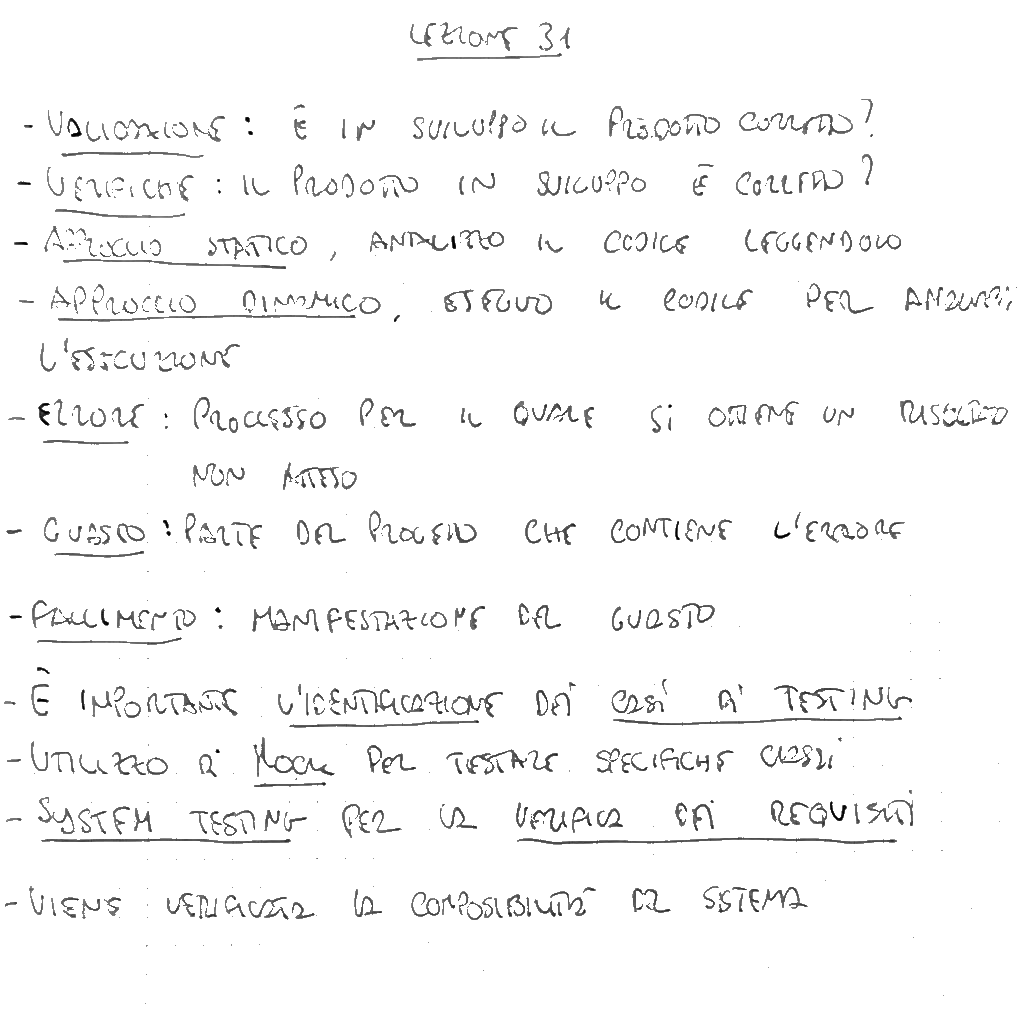 LEZIONE 31
- VALIDAZIONE : È IN SVILUPPO IL PRODOTTO CORRETTO?
- VERIFICHE : IL PRODOTTO IN SVILUPPO È CORRETTO?
- APPROCCIO STATICO, ANALIZZO IL CODICE LEGGENDOLO
- APPROCCIO DINAMICO, ESEGUO IL CODICE PER
L'ESECUZIONE
- ERRORE : PROCESSO PER IL QUALE SI OTTIENE UN RISULTATO
NON ATTESO
- GUASTO : PARTE DEL PROGETTO CHE CONTIENE L'ERRORE
- FALLIMENTO : MANIFESTAZIONE DEL GUASTO
- È IMPORTANTE L'IDENTIFICAZIONE DEI CASI DI TESTING
- UTILIZZO DI MOCK PER TESTARE SPECIFICHE CLASSI
- SYSTEM TESTING PER LA VERIFICA DEI REQUISITI
- VIENE VERIFICATA LA COMPOSIBILITÀ DEL SISTEMA